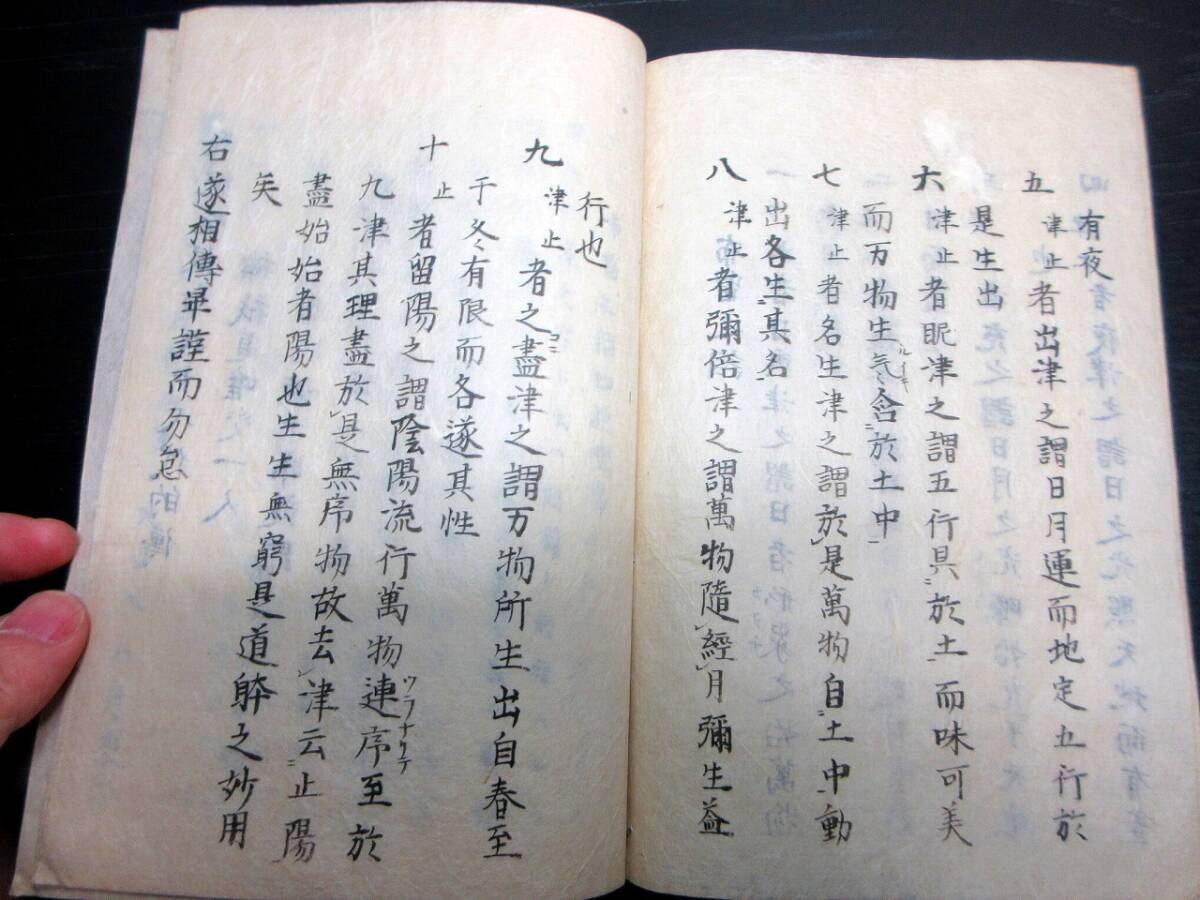 有夜
五津止者出津之謂日月運而地定五行於
是生出
六津止者眤津之謂五行具於土而味可美
而万物生気含於土中
七津止者名生津之謂於是萬物自土中動
出各生其名
八津止者彌倍津之謂萬物隨經月彌生益
行也
九津止者之盡津之謂万物所生出自春至
于冬有限而各遂其性
十止者留陽之謂陰陽流行萬物連序至於
九津其理盡於是無序物故去津云止陽
盡始始者陽也生生無窮是道躰之妙用
矣
右遂相傳畢謹而勿怠